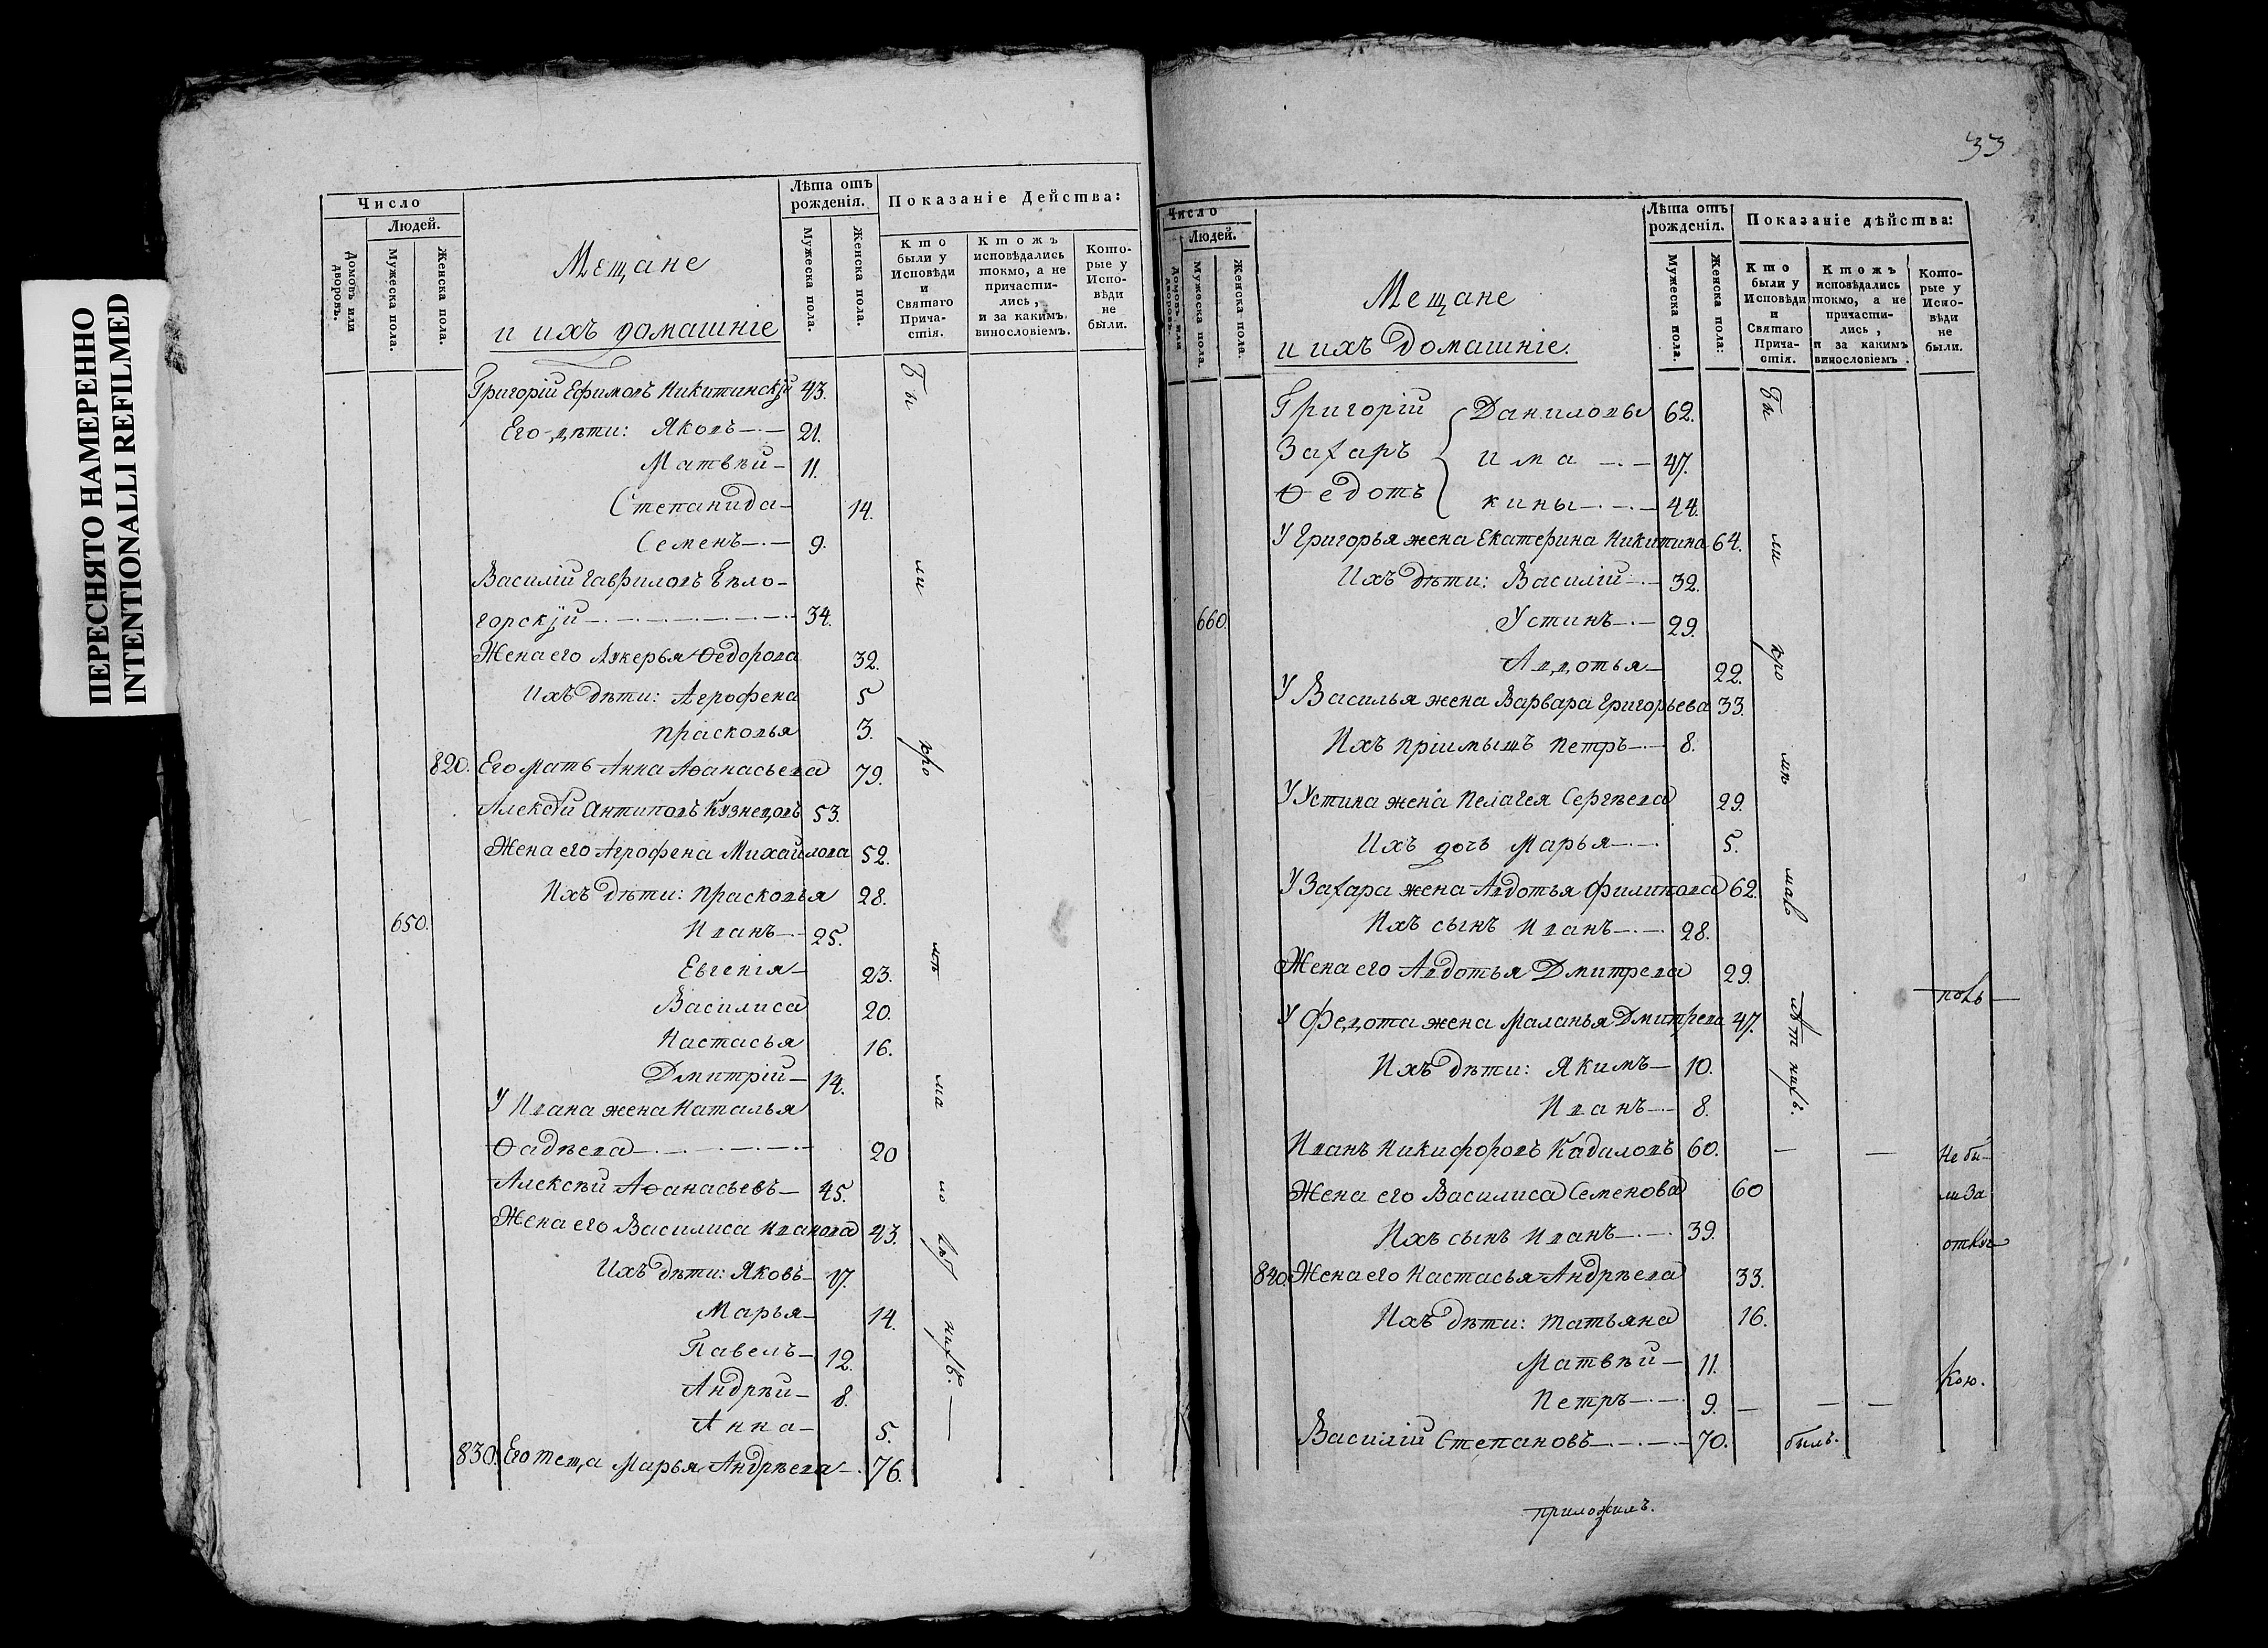 ПЕРЕСНЯТО НАМЕРЕННО
INTENTIONALLI REFILMED
Число
Людей.
Домовъ или дворовъ.
Мужеска пола.
Женска пола.
Мещане
и ихъ домашніе
Лѣта отъ рожденія.
Мужеска пола.
Женска пола.
Показаніе Действа:
Кто были у Исповѣди и Святаго Причастія.
Ктожъ исповѣдались токмо, а не причастились, и за какимъ винословіемъ.
Которые у Исповѣди не были.
Григорій Ефимовъ Никитинскій 43.
Его дѣти: Яковъ 21.
Матвѣи 11.
Степанида 14.
Семенъ 9.
Василій Гавриловъ Бѣло-
горскій 34.
Жена его Лукерья Ѳедорова 32.
Ихъ дѣти: Агрофена 5
Прасковья 3.
820. Его мать Анна Аѳанасьева 79.
Алексѣй Антиповъ Кузнецовъ 53.
Жена его Агрофена Михайлова 52.
Ихъ дѣти: Прасковья 28.
650. Иванъ 25.
Евгенія 23.
Василиса 20.
Настасья 16.
Дмитрій 14.
У Ивана жена Наталья
Ѳадѣева 20
Алексѣй Аѳанасьевъ 45.
Жена его Василиса Иванова 43.
Ихъ дѣти: Яковъ 17.
Марья 14.
Павелъ 12.
Андрѣи 8.
Анна 5.
830. Его теща Марья Андрѣева 76.
Бы
ли
кро
мѣ
ма
нихъ.
33
Число
Людей.
Домовъ или дворовъ.
Мужеска пола.
Женска пола.
Мещане
и ихъ домашніе.
Лѣта отъ рожденія.
Мужеска пола.
Женска пола:
Показаніе дѣйства:
Кто были у Исповѣди и Святаго Причастія.
Ктожъ исповѣдались токмо, а не причастились, и за какимъ винословіемъ.
Которые у Исповѣди не были.
Григорій Даниловы 62.
Захаръ има 47.
Ѳедотъ кины 44.
У Григорья жена Екатерина Никитина 64.
Ихъ дѣти: Василій 32.
660. Устинъ 29.
Авдотья 22.
У Василья жена Варвара Григорьева 33.
Ихъ пріимышъ Петръ 8.
У Устина жена Пелагея Сергѣева 29.
Ихъ дочь Марья 5.
У Захара жена Авдотья Филипова 62.
Ихъ сынъ Иванъ 28.
Жена его Авдотья Дмитрева 29.
У Федота жена Маланья Дмитрева 47.
Ихъ дѣти: Якимъ 10.
Иванъ 8.
Иванъ Никифоровъ Кадиловъ 60. Не бы-
Жена его Василиса Семенова 60 ли за
Ихъ сынъ Иванъ 39. отлуч
840. Жена его Настасья Андрѣева 33.
Ихъ дѣти: Татьяна 16.
Матвѣй 11. кою.
Петръ 9.
Василій Степановъ 70. былъ.
Бы
ли
кро
мѣ
нихъ.
приложилъ.